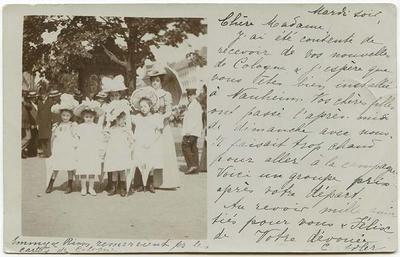 Mardi soir,
Chère Madame,
J'ai été contente de
recevoir de vos nouvelles
de Cologne & j'espère que
vous êtes bien installée
à Nauheim. Vos chère filles
ont passé l'après midi
de dimanche avec nous
il faisait trop chaud
pour aller à la campagne
Voici un groupe pris
après votre départ.
Au revoir mille
tiés pour vous & Félix
de Votre dévouée
E. Adler
Emmy & remercient pr le
cartes de Cologne